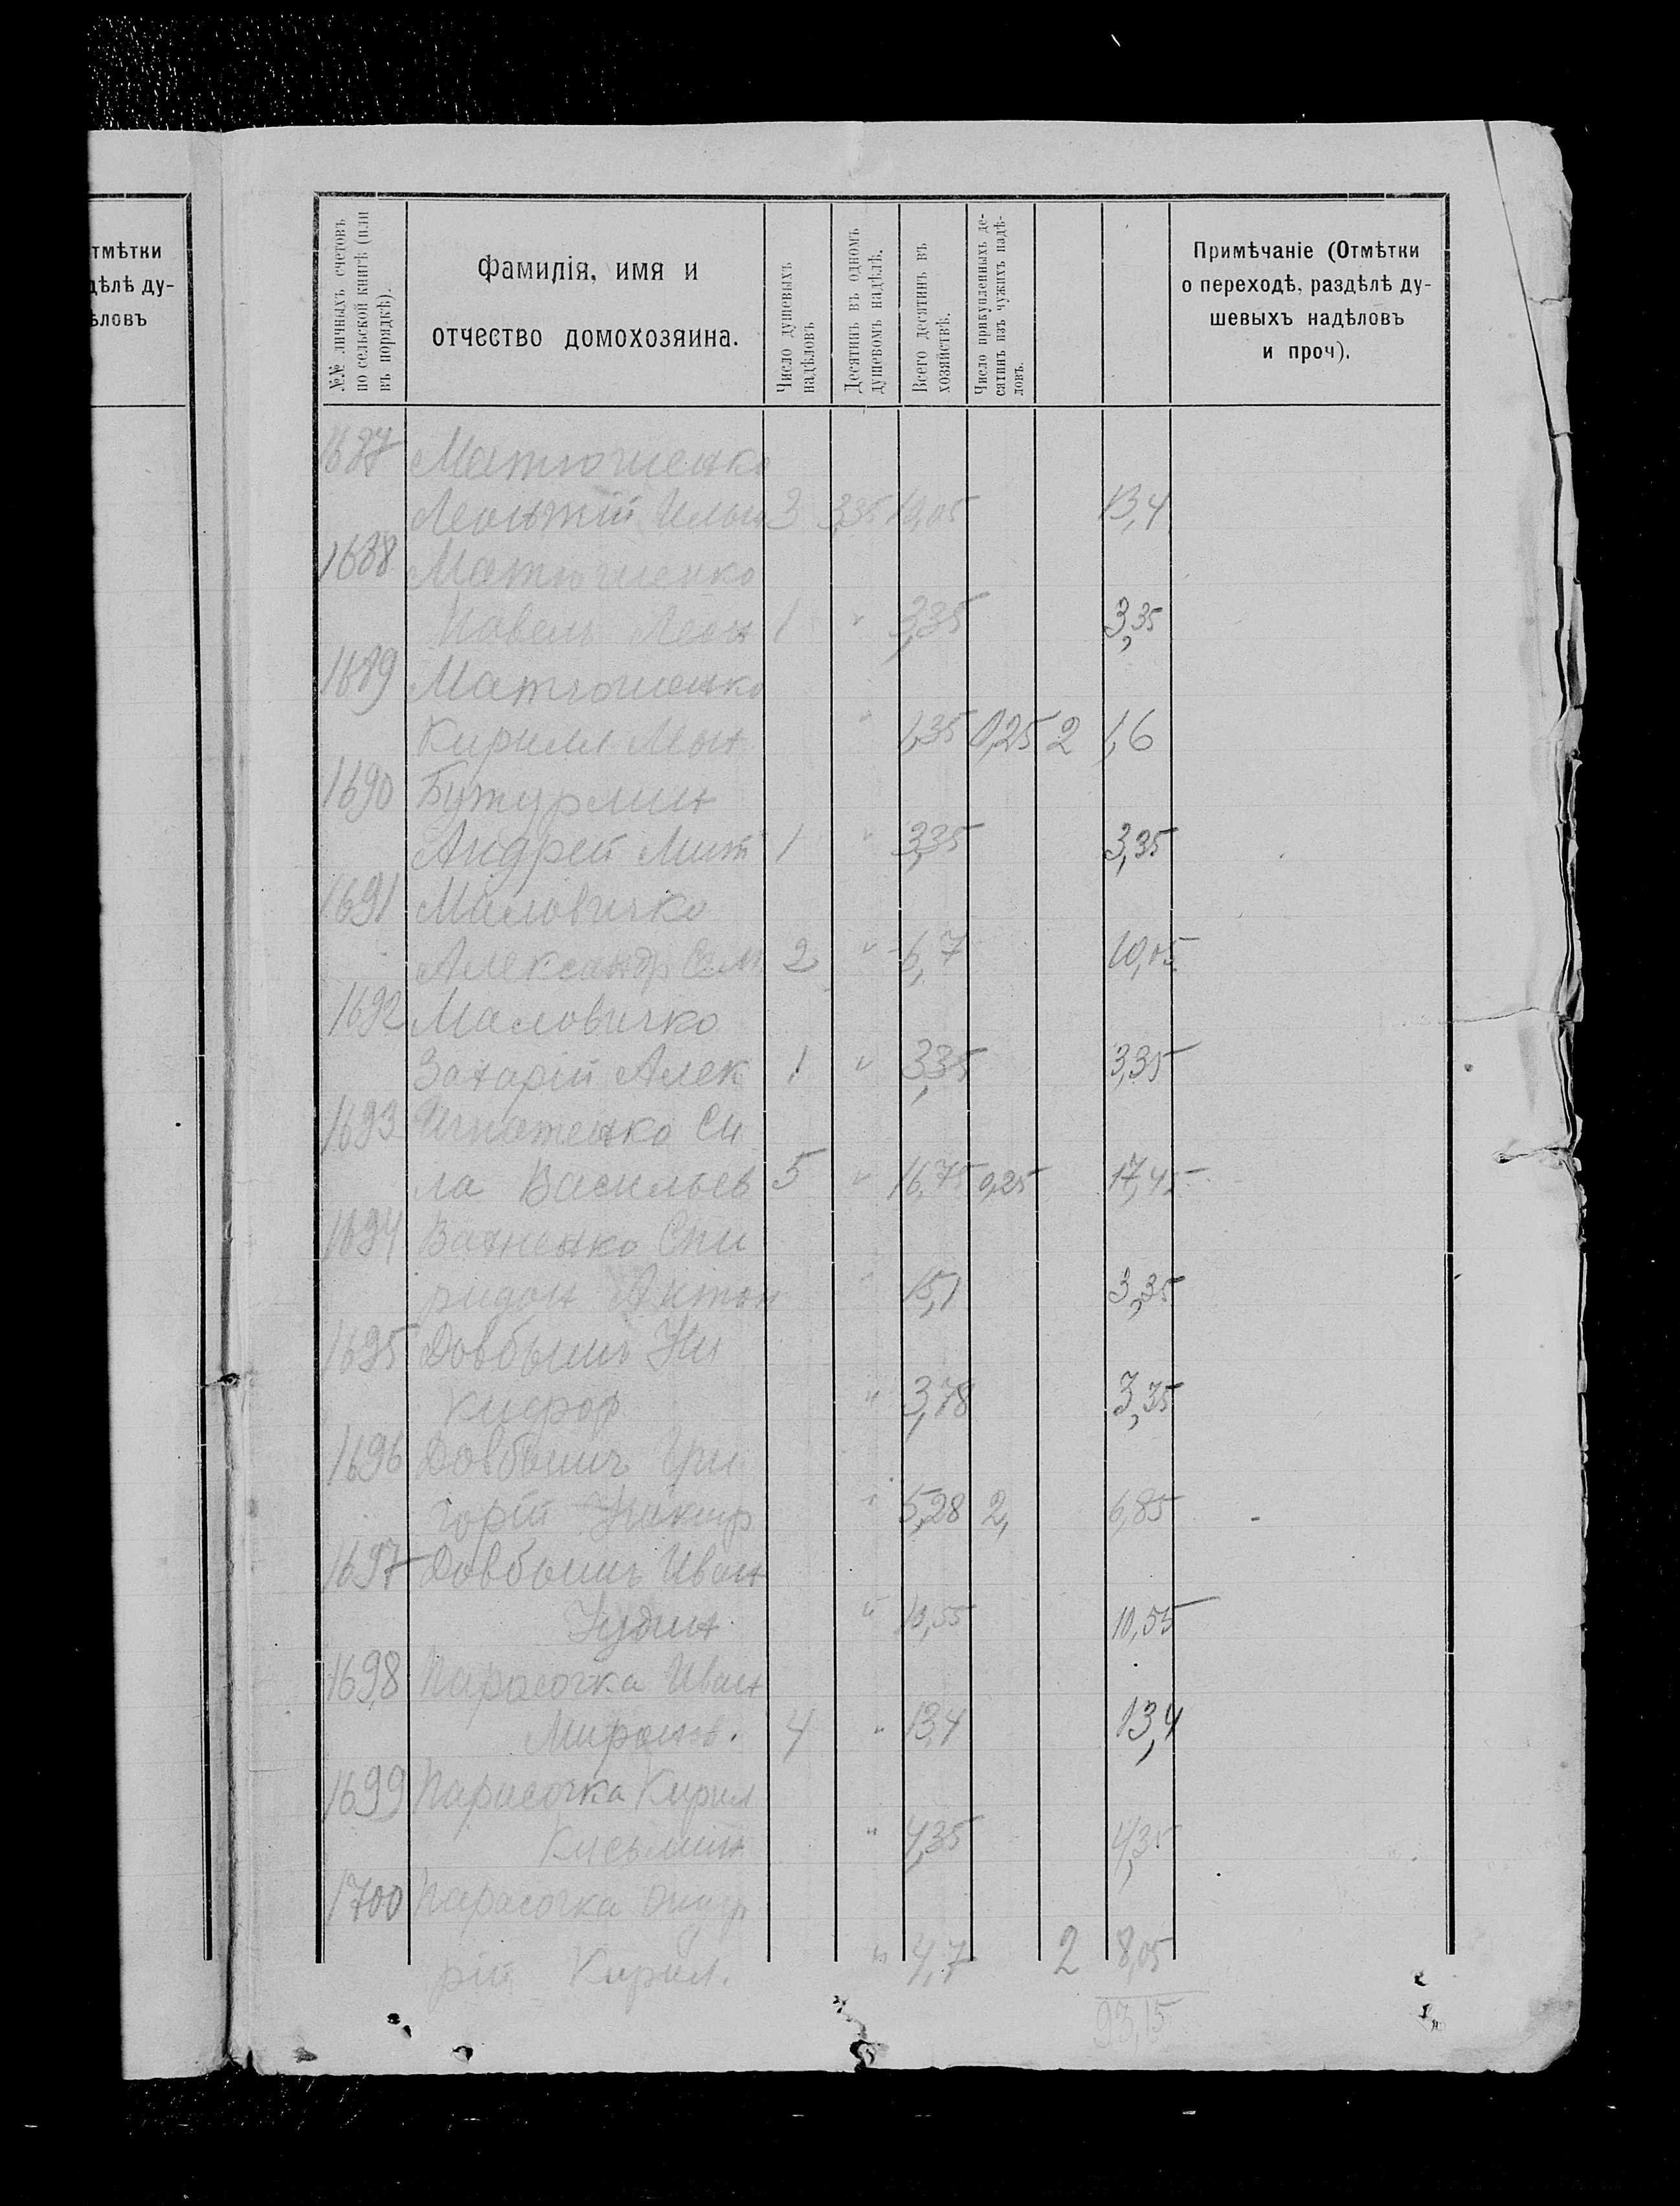 тмѣтки
дѣлѣ ду-
ѣловъ
№№ личныхъ счетовъ
по сельской книгѣ (или
въ порядкѣ).
Фамилія, имя и
отчество домохозяина.
Число душевыхъ
надѣловъ
Десятинъ въ одномъ
душевомъ надѣлѣ.
Всего десятинъ въ
хозяйствѣ.
Число прикупленныхъ де-
сятинъ изъ чужихъ надѣ-
ловъ.
Примѣчаніе (Отмѣтки
о переходѣ, раздѣлѣ ду-
шевыхъ надѣловъ
и проч).
1687 Матюшенко
Леонтій Ильи 3 3,35 10,05 13,4
1688 Матюшенко
Павелъ Леон 1 " 3,35 3,35
1689 Матюшенко
Кирилл " 1,35 0,25 2 1,6
1690 Бутурлин
Андрей Мит 1 " 3,35 3,35
1691 Маловичко
Александр Сем 2 " 6,7 10,05
1692 Маловичко
Захарій Алек 1 " 3,35 3,35
1693 Игнатенко Си
ла Васильев 5 " 16,75 0,25 17,45
1694 Вахненко Спи
ридон Антон " 15,1 3,35
1695 Довбышъ Ни
кифор " 3,78 3,35
1696 Довбышъ Гри
горій Никиф " 5,28 2, 6,85
1697 Довбышъ Иван
" 10,55 10,55
1698 Парасочка Иван
Миронов. 4 " 13,4 13,4
1699 Парасочка Кирил
Кисьмин " 4,35 4,35
1700 Парасочка
рій Кирил. " 4,7 2 8,05
93,15